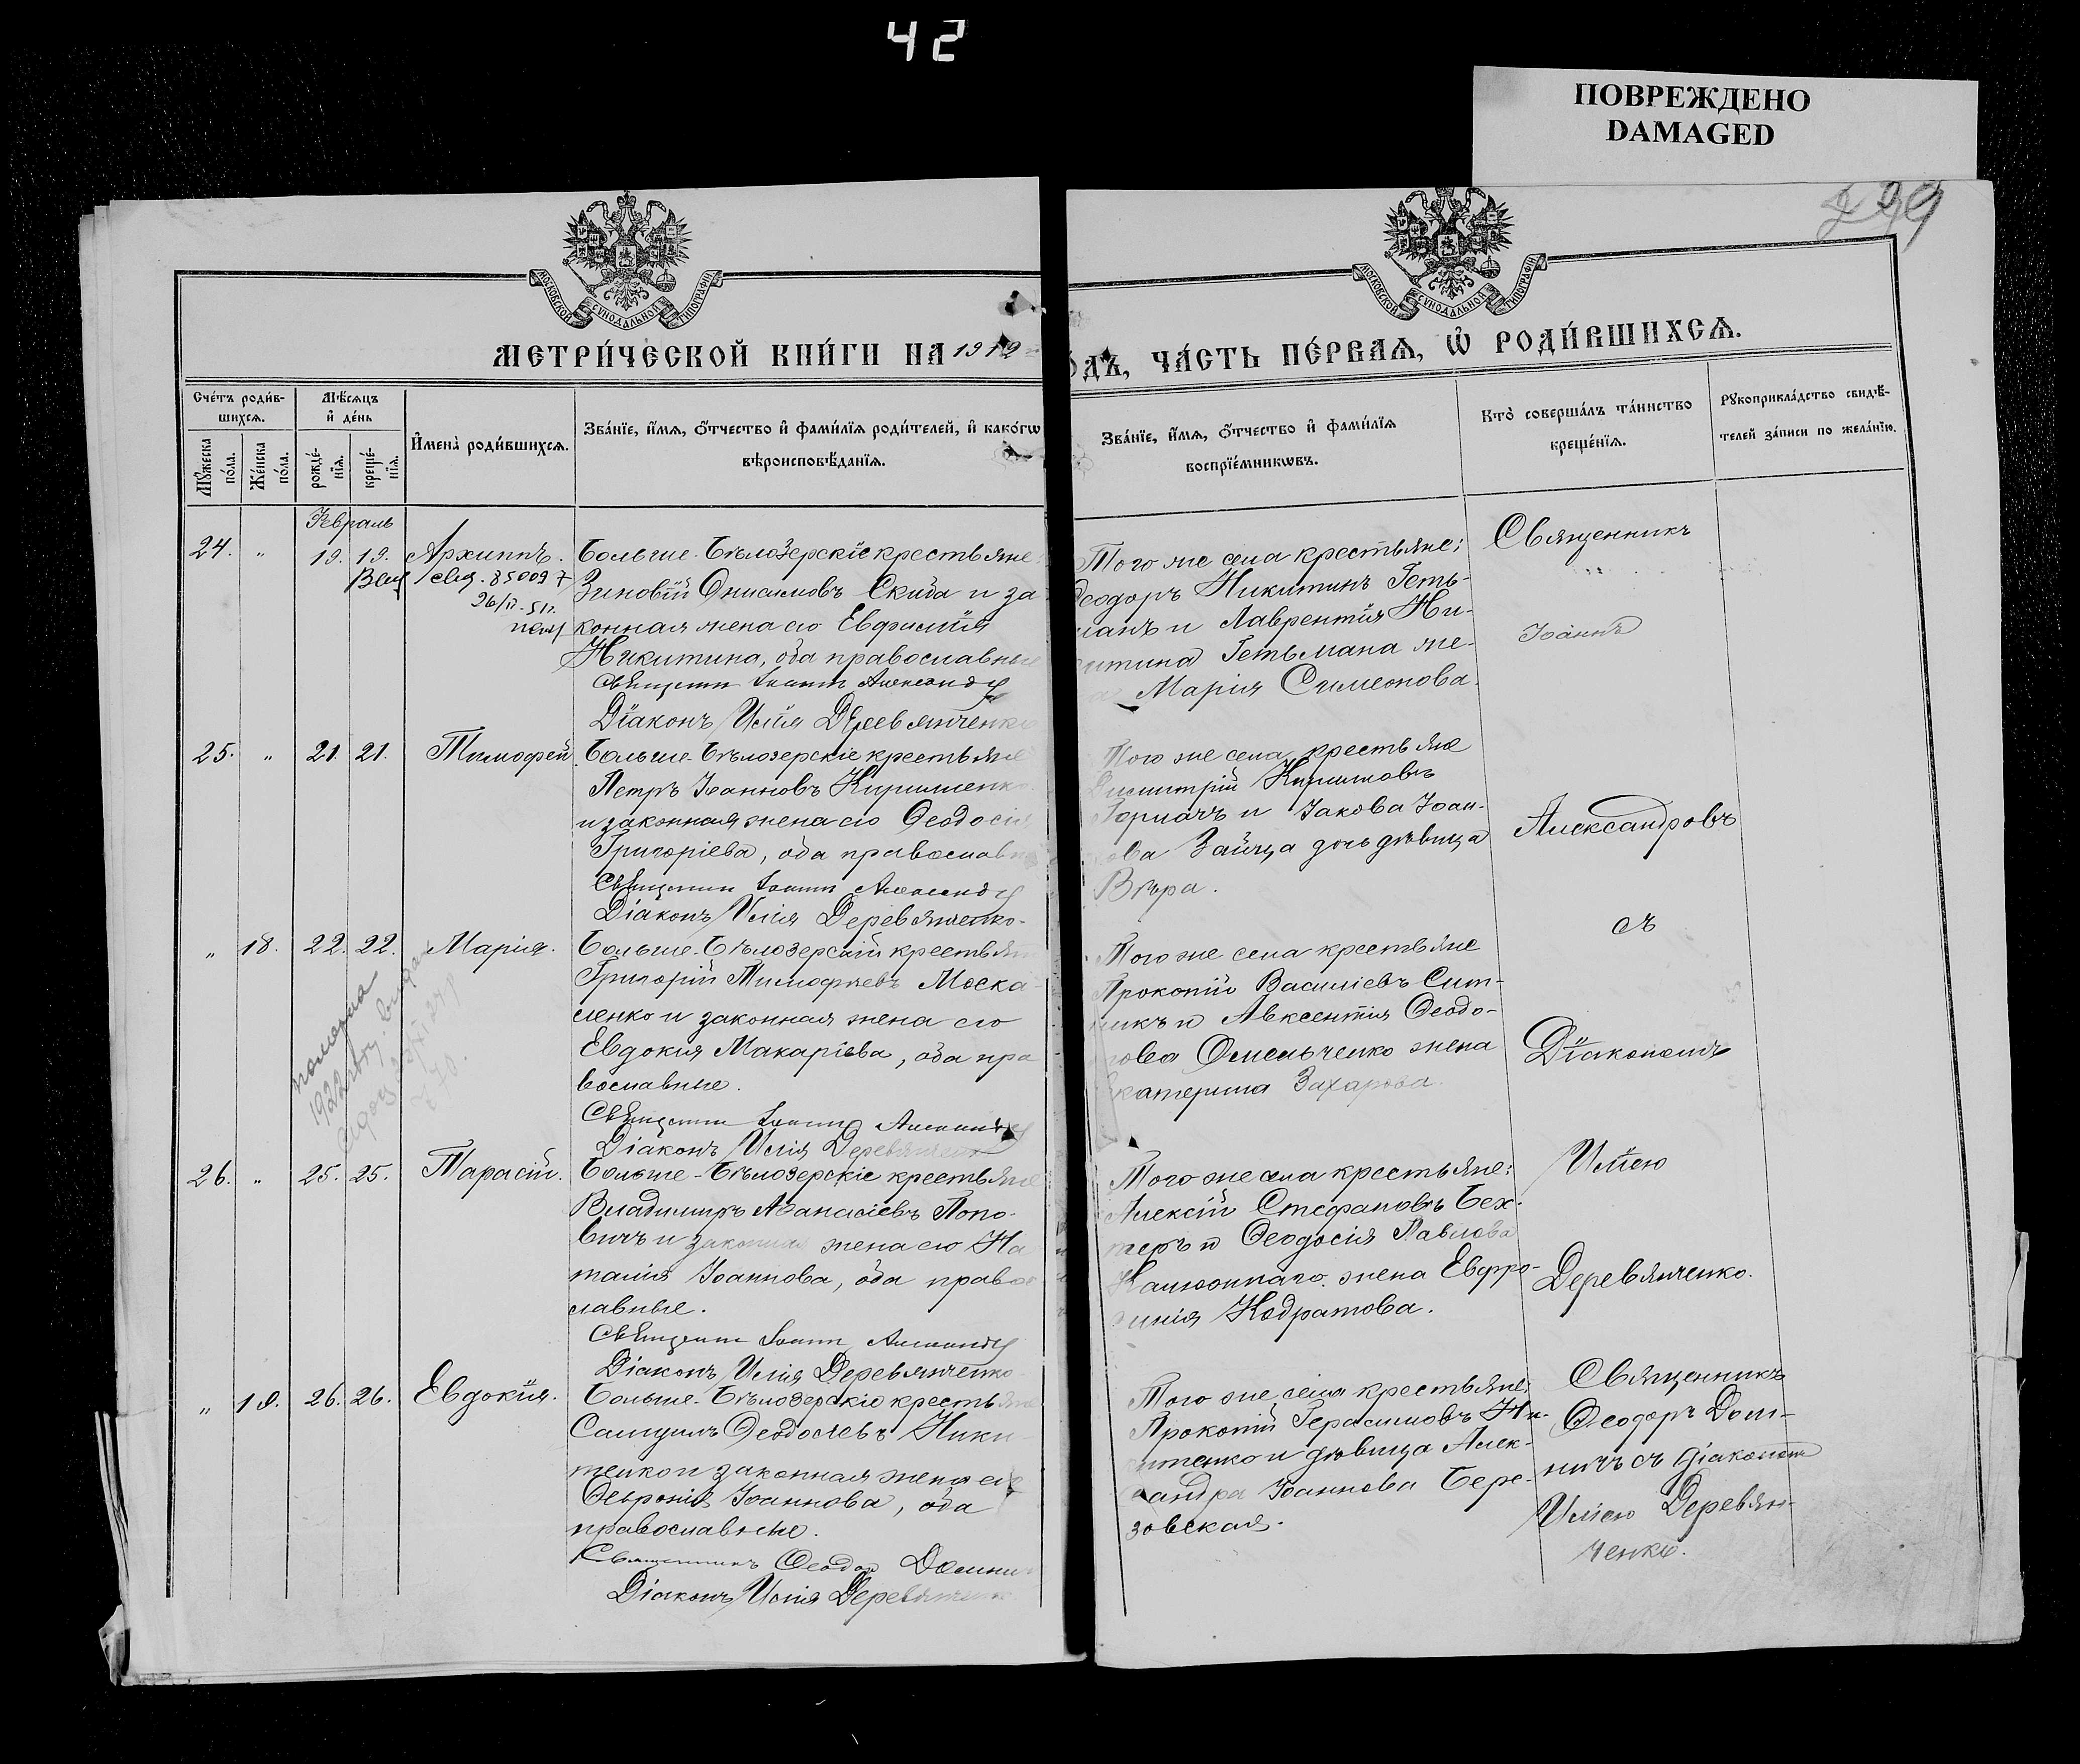 42
ПОВРЕЖДЕНО
DAMAGED
299
МОСКОВСКОЙ СѴНОДАЛЬНОЙ ТИПОГРАФІИ
МОСКОВСКОЙ СѴНОДАЛЬНОЙ ТИПОГРАФІИ
МЕТРИ́ЧЕСКОЙ КНИ́ГИ НА 1912
О́ДЪ, ЧА́СТЬ ПЕ́РВАѦ, Ѡ҆ РОДИ́ВШИХСѦ.
Сче́тъ роди́в-
шихсѧ.
Мꙋ́жеска по́ла.
Же́нска по́ла.
Мѣ́сѧцъ
и҆ де́нь
рожде́-
нїѧ.
креще́-
нїѧ.
И҆мена̀ роди́вшихсѧ.
Зва́нїе, и҆́мѧ, ѻ҆́тчество и҆ фами́лїѧ роди́телей, и҆ како́гѡ
вѣроисповѣ́данїѧ.
Зва́нїе, и҆́мѧ, ѻ҆́тчество и҆ фами́лїѧ
воспрїе́мникѡвъ.
Кто̀ соверша́лъ та́инство
креще́нїѧ.
Рꙋкоприкла́дство свидѣ́-
телей за́писи по жела́нїю.
Февраль
24. " 19. 19. Архиппъ.
свид. 850097
Больше-Бѣлозерскіе крестьяне:
Зиновій Онисимовъ Скида и за
конная жена его Евфимія
Никитина, оба православные
Священникъ Іоаннъ Александр
Діаконъ Илія Деревянченко
Того же села крестьяне:
еодоръ Никитинъ Геть-
манъ и Лаврентія Ни-
китина Гетьмана же-
а Марія Симеонова.
Священникъ
Іоаннъ
25. " 21. 21. Тимофей
Больше-Бѣлозерскіе крестьяне
Петръ Іоанновъ Кириленко
и законная жена его Ѳеодосія
Григоріева, оба православн
Священникъ Іоаннъ Александр
Діаконъ Илія Деревянченко.
Того же села крестьяне
Димитрій Кирилловъ
и Іакова Іоан-
ова Зайца дочь дѣвица
Вѣра.
Александровъ
съ
" 18. 22. 22. Марія.
Больше-Бѣлозерскіи крестьян
Григорій Тимофѣевъ Моска-
ленко и законная жена его
Евдокія Макаріева, оба пра
вославные.
Священникъ Іоаннъ Александр
Діаконъ Илія Деревянченк
Того же села крестьяне
Прокопій Василіевъ Сит-
никъ и Авксентія Ѳеодо-
рова Омельченко жена
катерина Захарова.
Діакономъ
26. " 25. 25. Тарасій.
Больше-Бѣлозерскіе крестьяне
Владимиръ Аѳанасіевъ Попо-
вичъ и законная жена его На
талія Іоаннова, оба право
славные.
Священникъ Іоаннъ Александр
Діаконъ Илія Деревянченко
Того же села крестьяне:
Алексій Стефановъ Бех-
теръ и Ѳеодосія Павлова
жена Евфро-
синія Кодратова.
Иліею
Деревянченко.
" 19. 26. 26. Евдокія.
Больше-Бѣлозерскіе крестьяне
Самуилъ Ѳеодосіевъ Ники-
тенко и законная жена его
Ѳевронія Іоаннова, оба
православные.
Священникъ Ѳеодоръ Домни
Діаконъ Илія Деревянченко
Того же села крестьяне:
Прокопій Герасимовъ Ни-
китенко и дѣвица Алек-
сандра Іоаннова Бере-
зовская.
Священникъ
Ѳеодоръ Дом-
ничъ съ діакономъ
Иліею Деревян-
ченко.